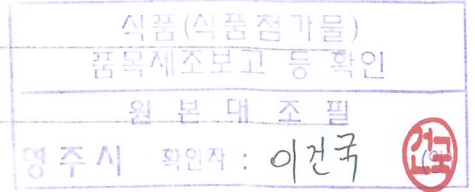 식품(식품첨가물)
품목제조보고 등 확인
원 본 대 조 필
영주시 확인자 : 이건국 (인)